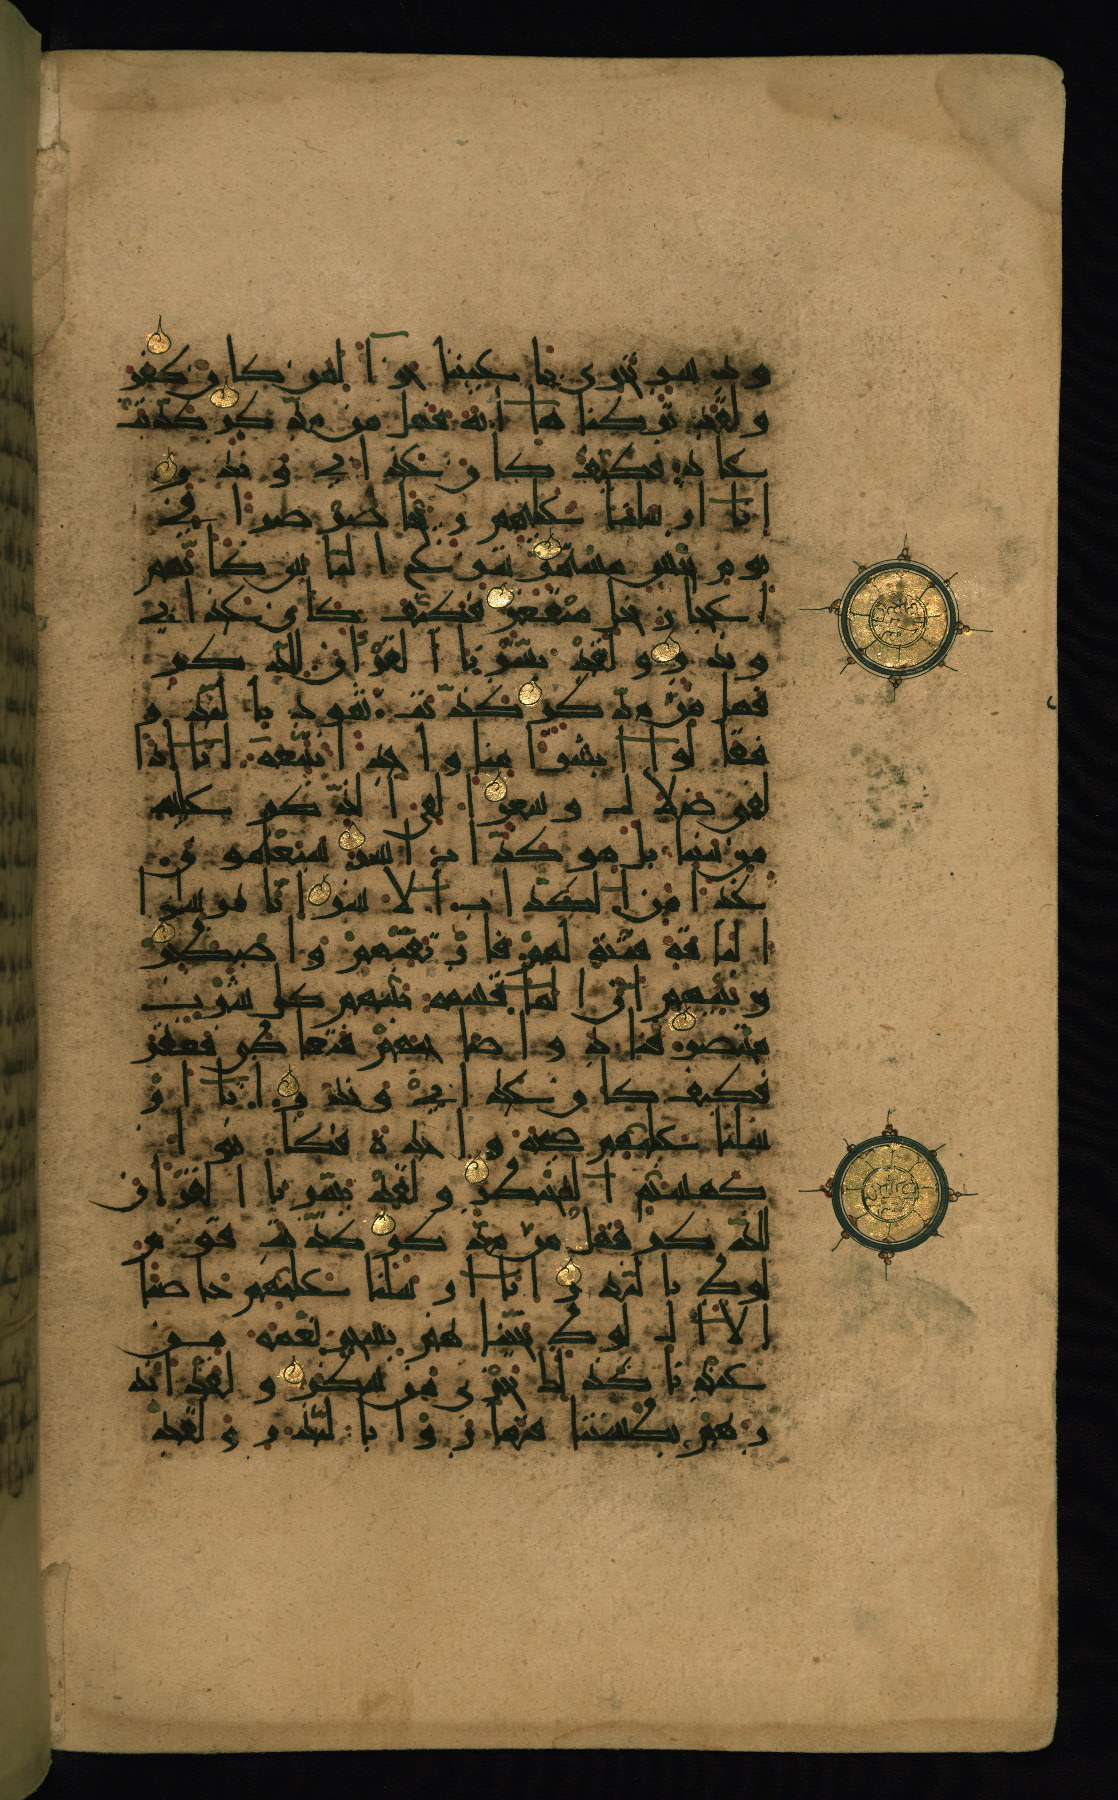 ودسر تجري باعيننا جزآ لمن كان كفر
ولقد تركناها آية فهل من مدكر كذبت
عاد فكيف كان عذابي ونذر
انا ارسلنا عليهم ريحا صرصرا في
يوم نحس مستمر تنزع الناس كانهم
اعجاز نخل منقعر فكيف كان عذابي
ونذر ولقد يسرنا القران للذكر
فهل من مدكر كذبت ثمود بالنذر
فقالوا ابشرا منا واحدا نتبعه انا اذا
لفي ضلال وسعر القي الذكر عليه
من بيننا بل هو كذاب اشر سيعلمون
غدا من الكذاب الاشر انا مرسلوا
الناقة فتنة لهم فارتقبهم واصطبر
ونبئهم ان الما قسمة بينهم كل شرب
محتضر فنادوا صاحبهم فتعاطى فعقر
فكيف كان عذابي ونذر انا ار
سلنا عليهم صيحة واحدة فكانوا
كهشيم المحتظر ولقد يسرنا القران
للذكر فهل من مدكر كذبت قوم
لوط بالنذر انا ارسلنا عليهم حاصبا
الا ال لوط نجينهم بسحر نعمة من
عندنا كذلك نجزي من شكر ولقد انذ
رهم بطشتنا فتماروا بالنذر ولقد